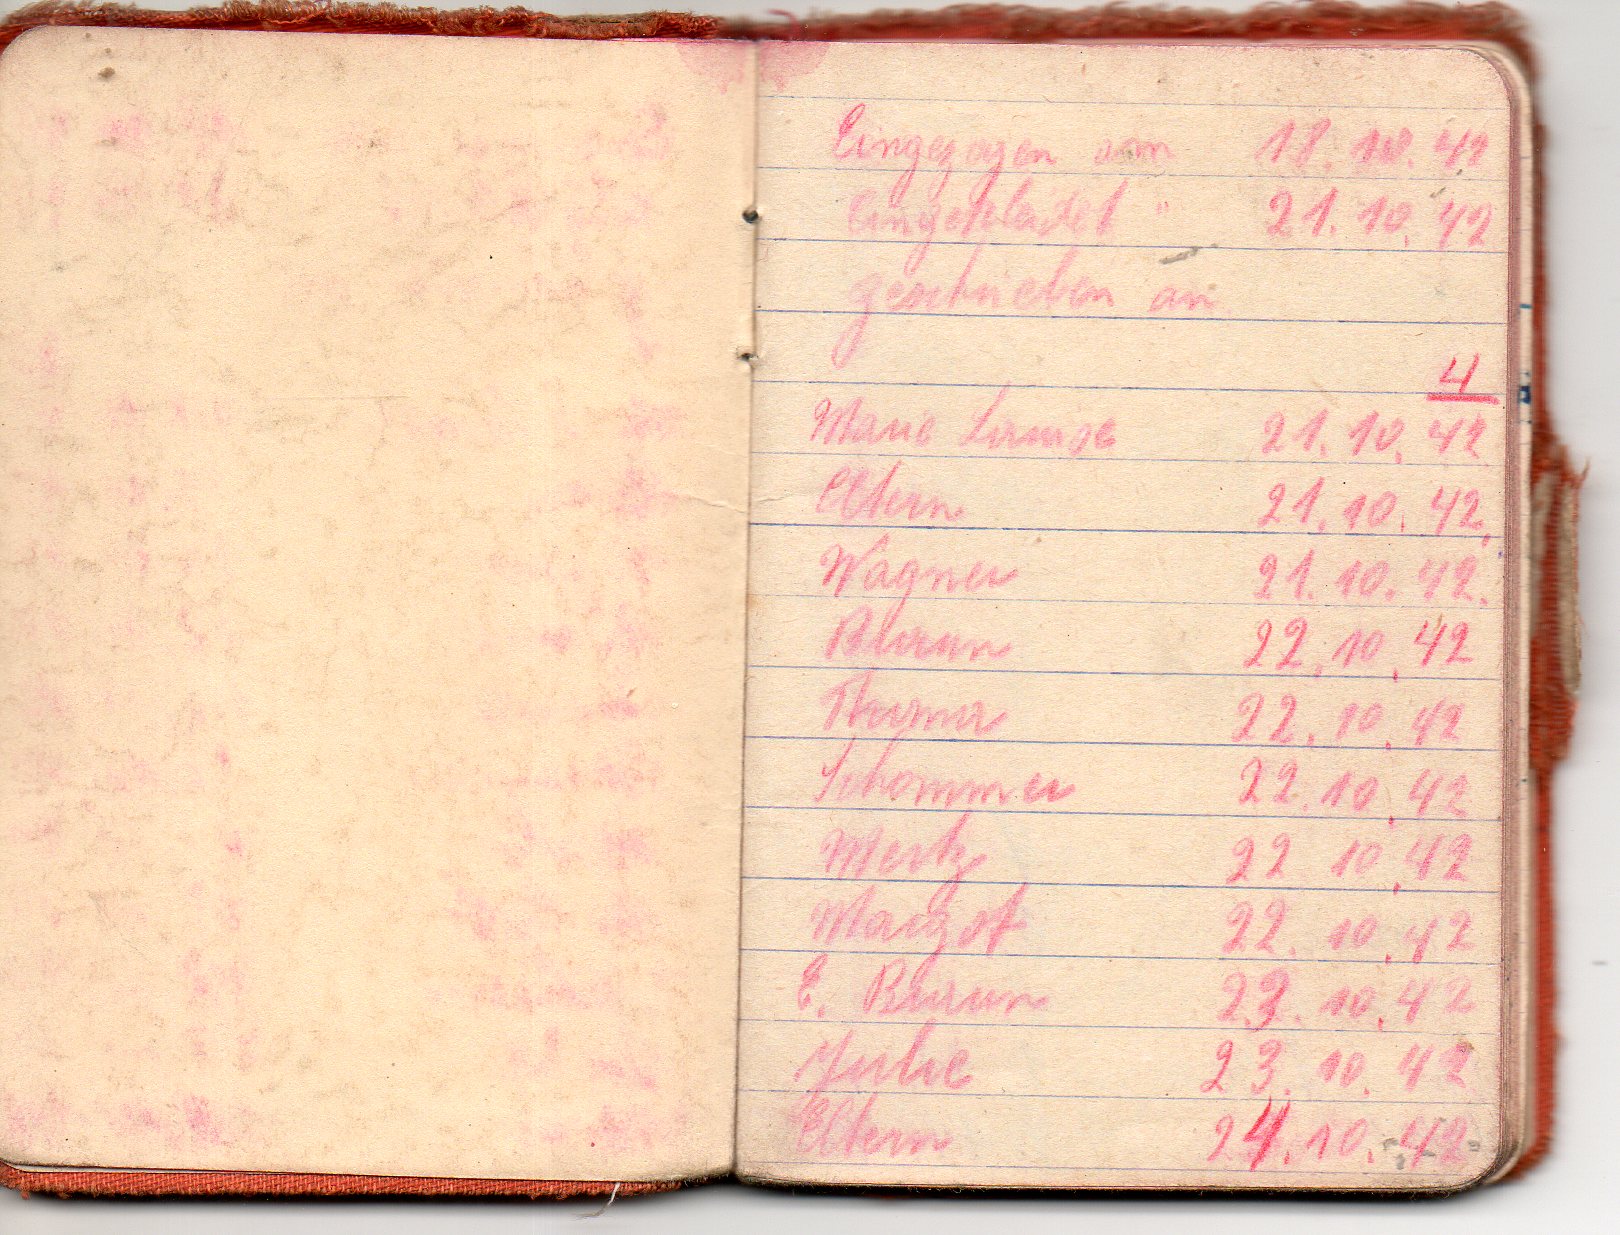 Eingezogen am 18. 10. 42
Eingekleidet " 21. 10. 42
geschrieben an
4
Marie Louise 21. 10. 42
Eltern 21. 10. 42.
Wagner 21. 10. 42.
22. 10. 42
22. 10. 42
Schommer 22. 10. 42
Mertz 22 10. 42
Margot 22. 10. 42
E. 23. 10. 42
Julie 23. 10. 42
Eltern 24. 10. 42